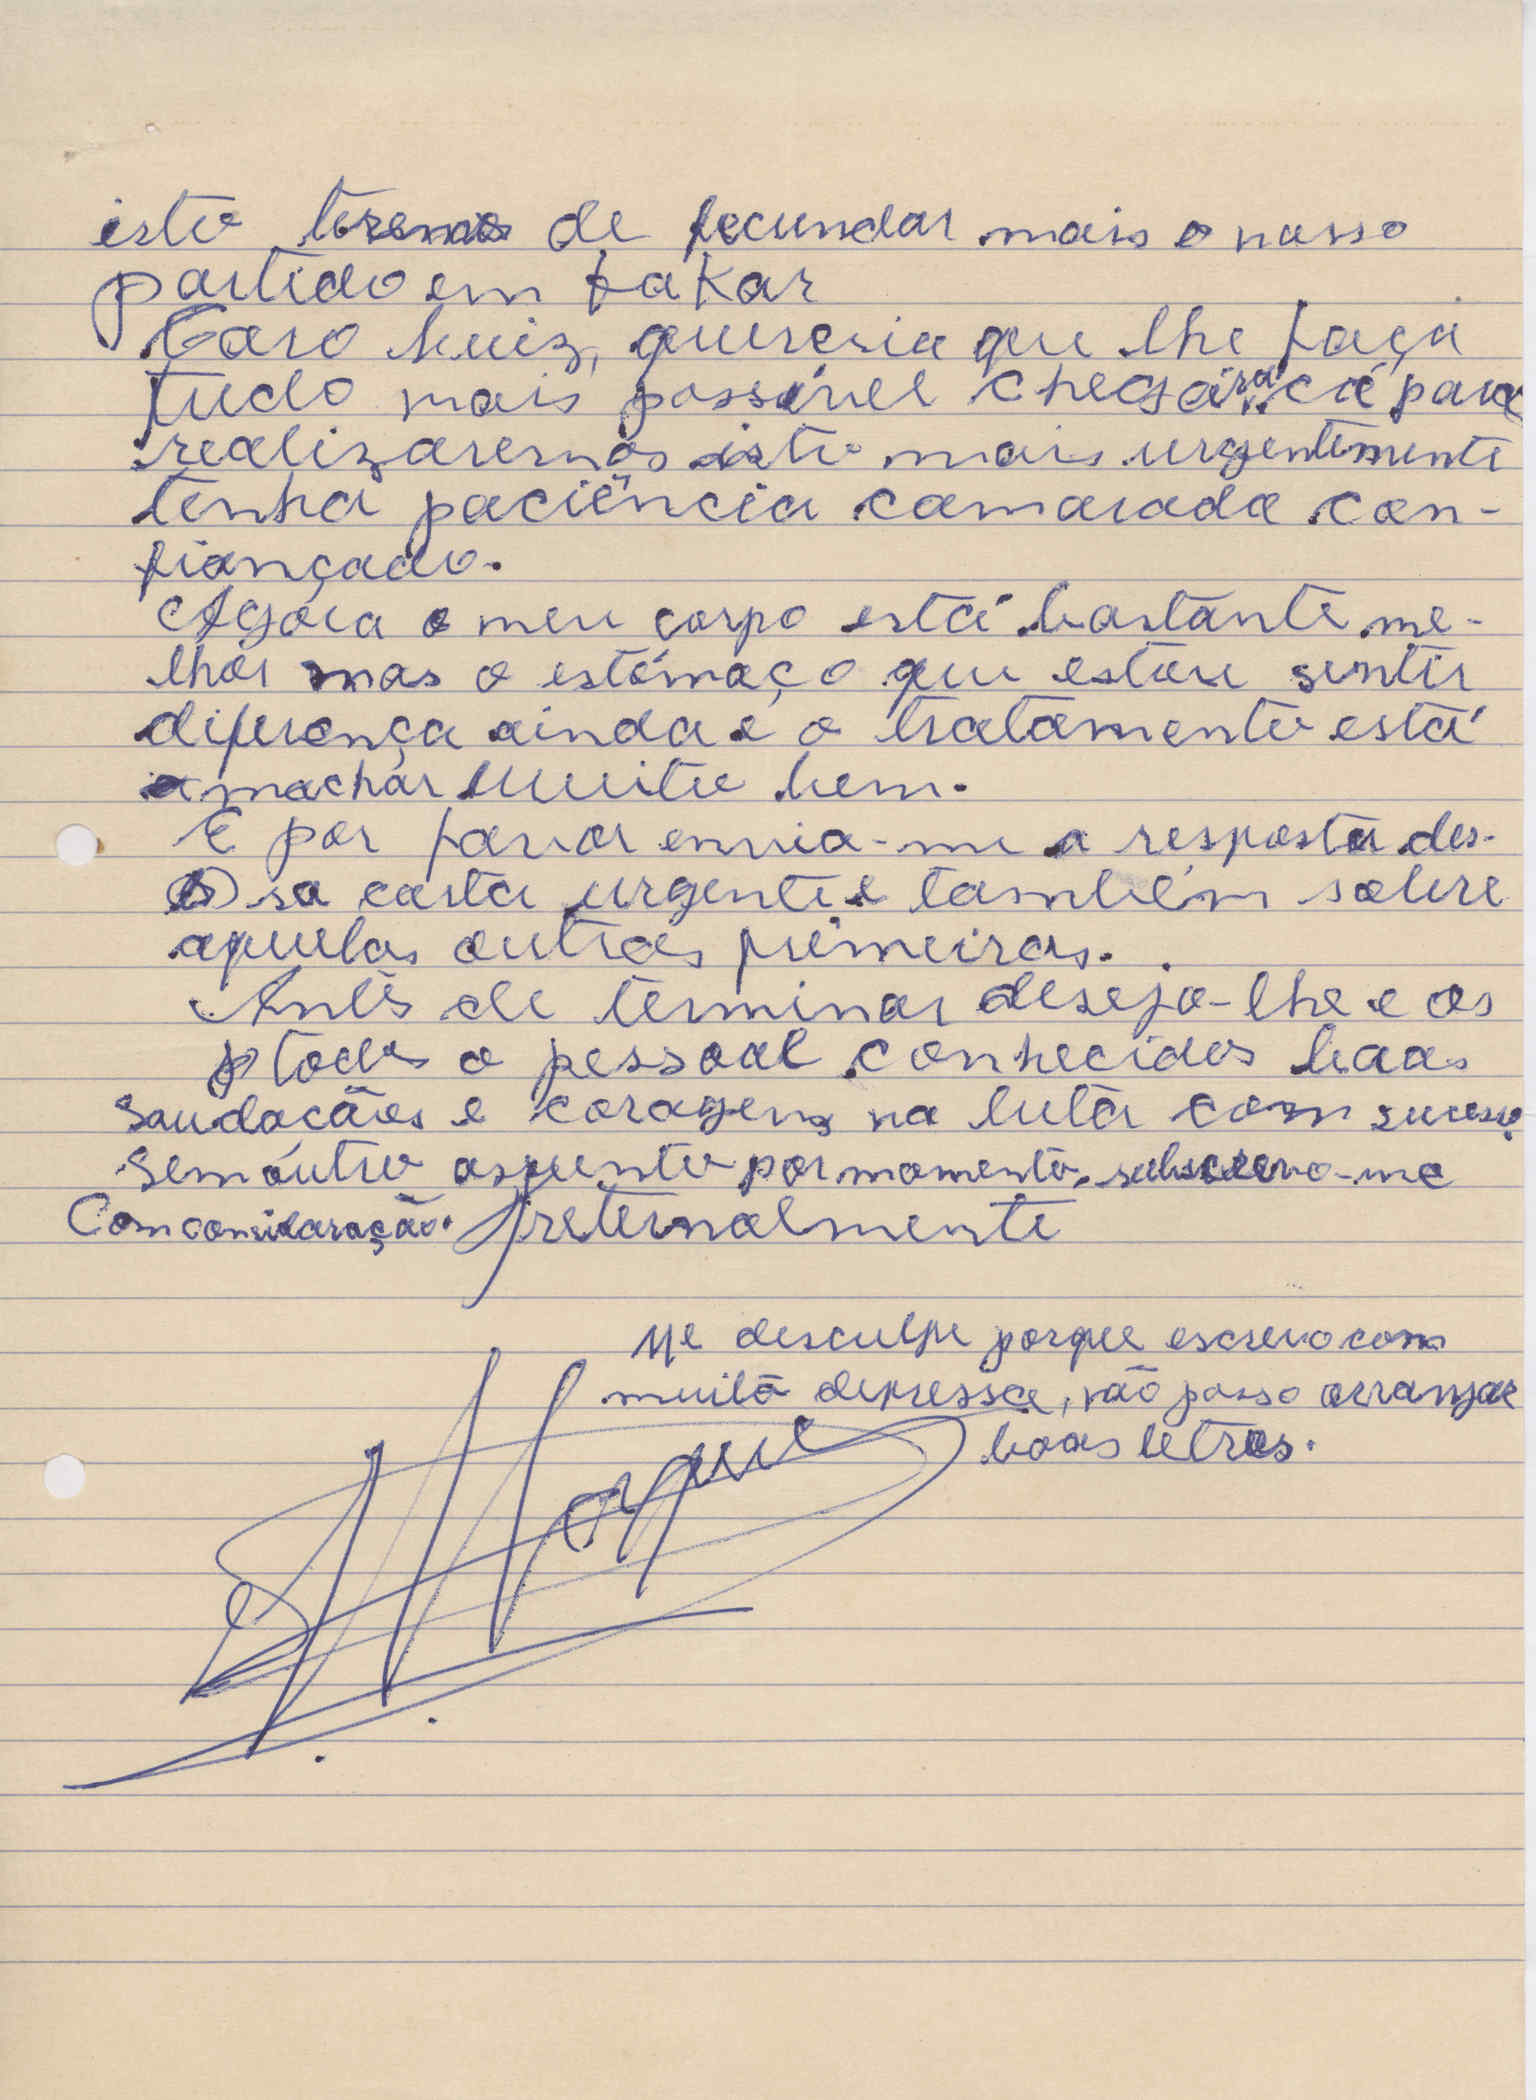 isto teremos de fecundar mais o nosso
partido em Dakar
Caro Luiz, quereria que lhe faça
tudo mais possível chegará cá para
realizaremos isto mais urgentemente
tenha paciência camarada con-
fiançado.
Agóra o meu corpo está bastante me-
lhór mas o estómaço que estou sentir
diferença ainda e o tratamento está
a machar muito bem.
E por favor envia-me a resposta des-
sa carta urgente e também sobre
aquelas outras primeiras.
Antes de terminar desejo-lhe e os
todos o pessoal conhecidos boas
saudações e coragem na luta com sucesso.
Sem outro aspunto por momento, subscrevo-me
Com consideração. freternalmente
Me desculpe porque escrevo com
muita depressa, não posso arranjar
boas letras.